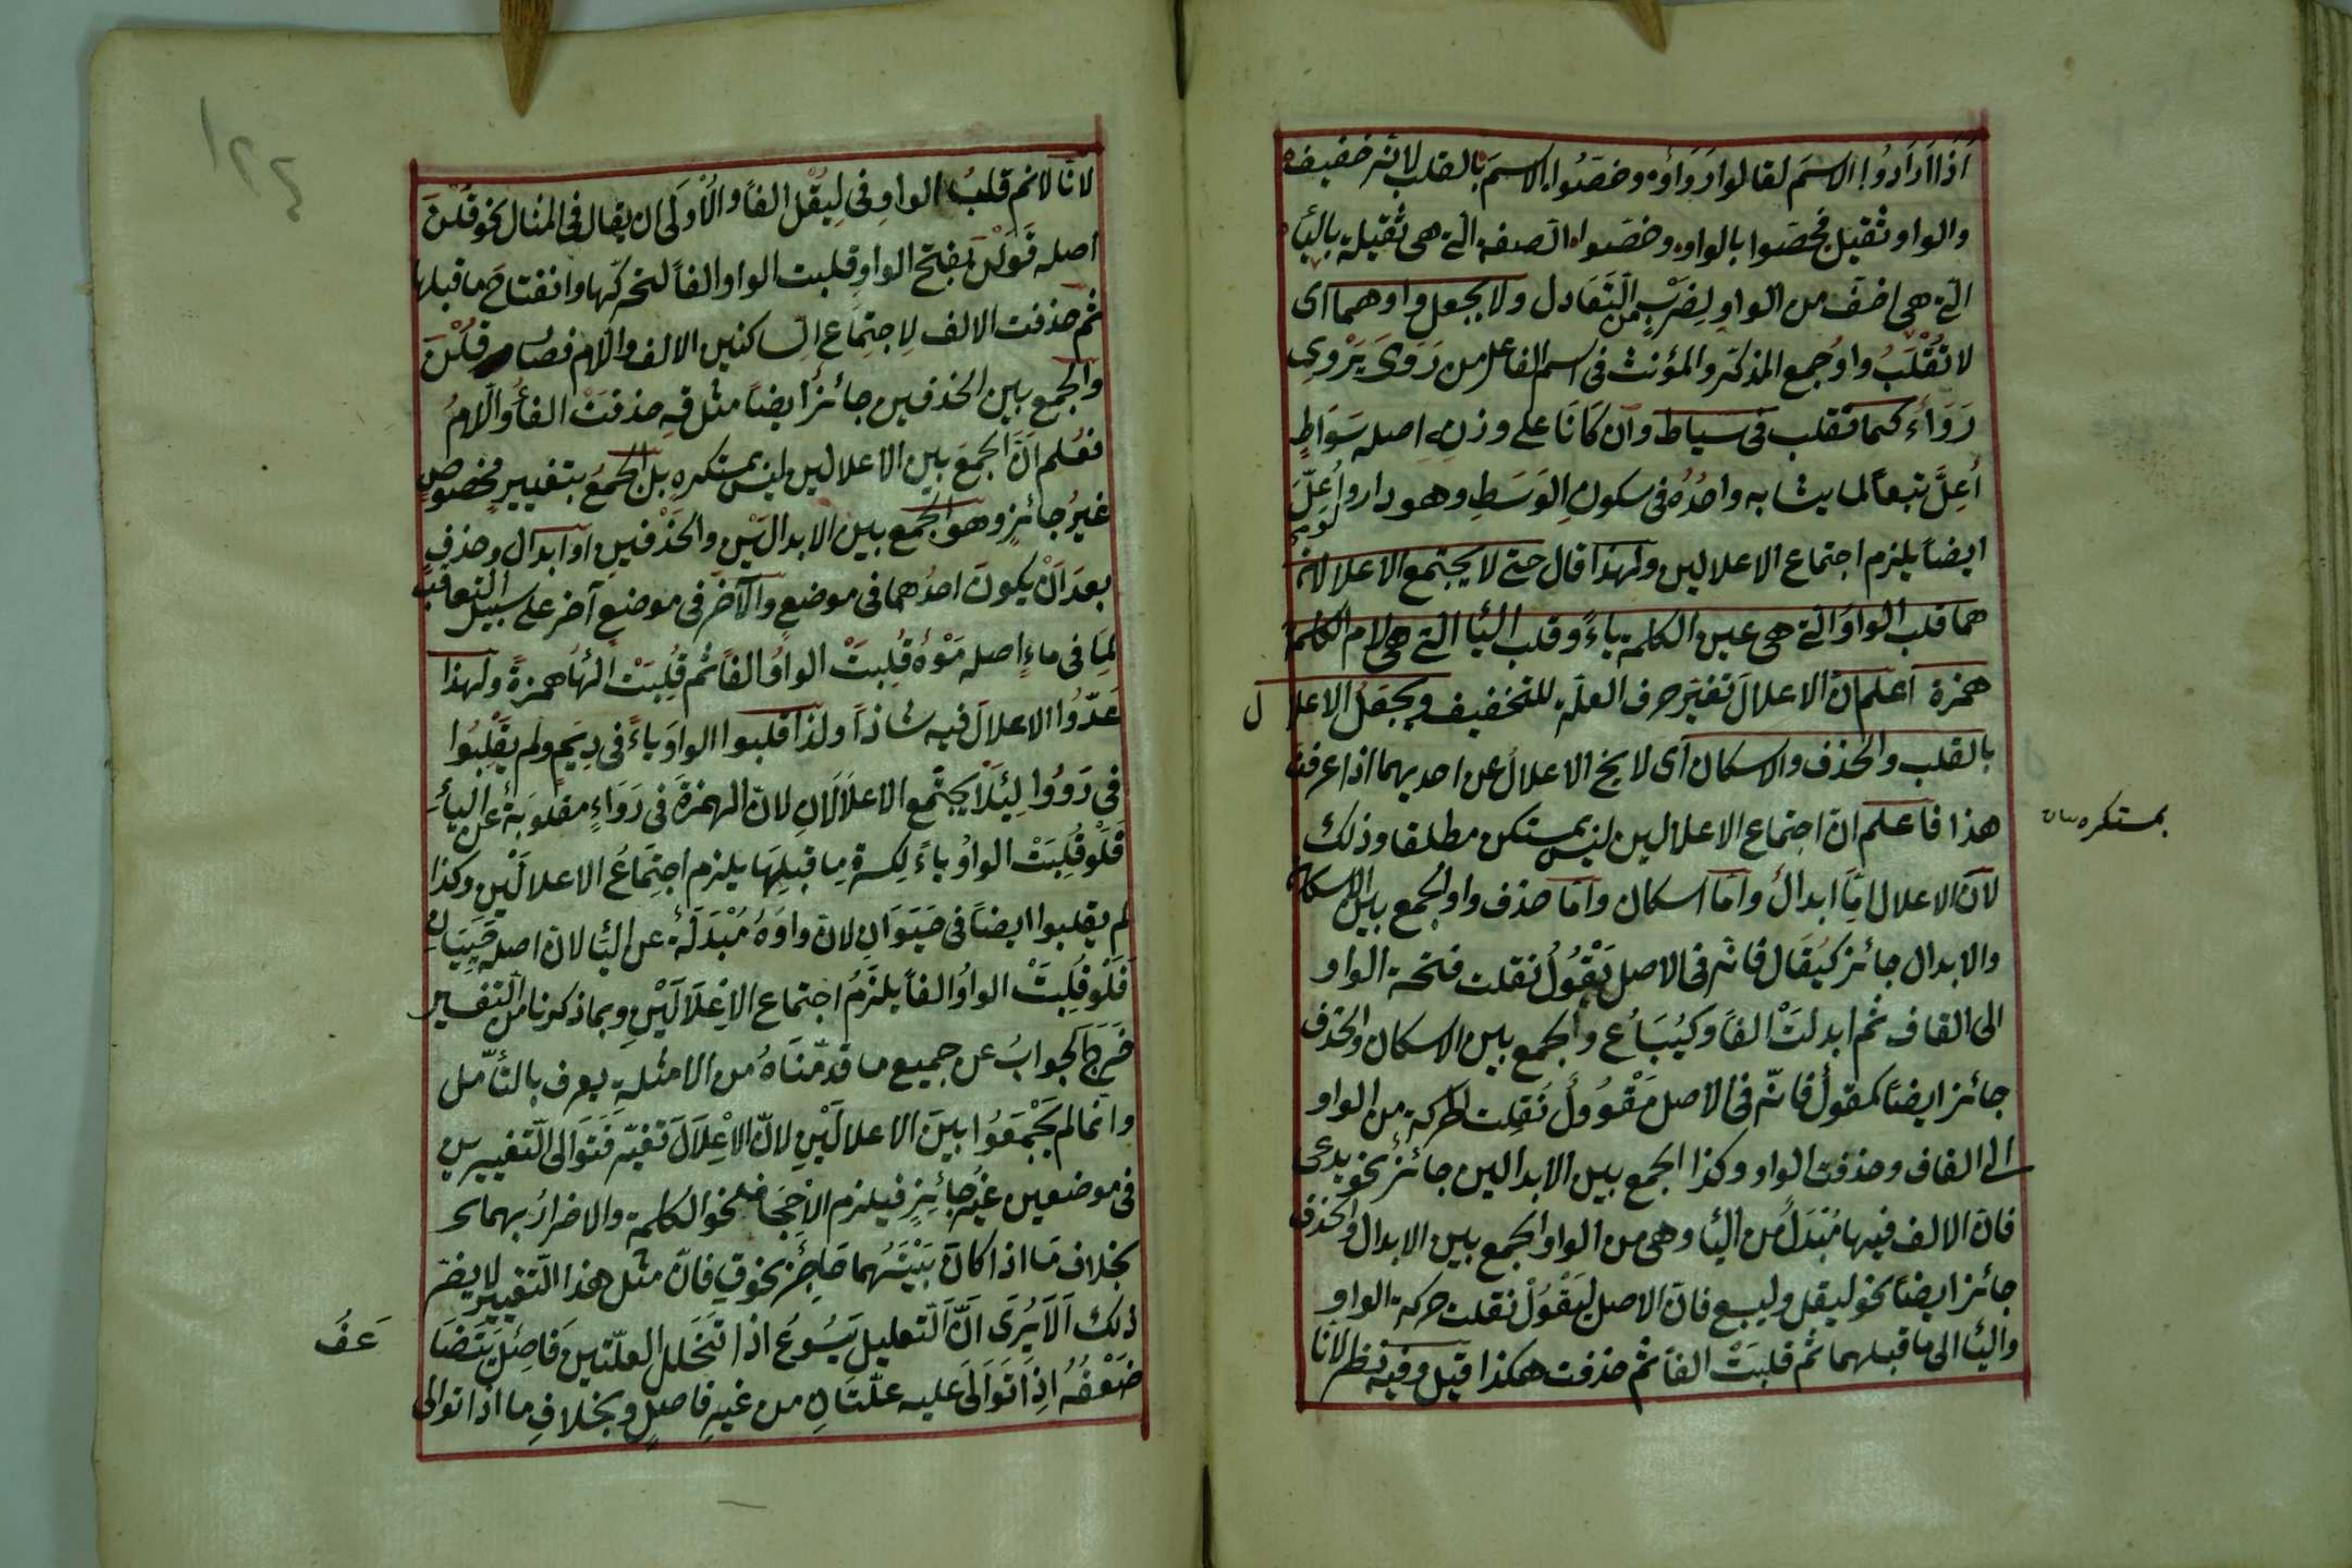 اذا ارادوا الاسم لقالوا رواؤه وخصّوا الاسم بالقلب لانه خفيف
والواو ثقيل فخصّوا بالواو وخصّوا الصفة التي هي ثقيلة بالياء
التي هي اخف من الواو لضرب من التعادل ولا يجعل واوهما اى
لا تقلب واو جمع المذكر والمؤنث في اسم الفاعل من روى يروى
رواء كما تقلب في سياط وان كانا على وزنه اصله سواط
اعلّ تبعاً لما يشابه واحده في سكون الوسط وهو دار و اعلّ
ايضاً يلزم اجتماع الاعلالين ولهذا قال حتى لا يجتمع الاعلالان
هما قلب الواو التي هي عين الكلمة ياءً وقلب الياء التي هي لام الكلمة
همزة اعلم ان الاعلال تغير حرف العلة للتخفيف ويجعل الاعلال
بالقلب والحذف والاسكان اى لا يخ الاعلال عن احديهما اذا عرفت
هذا فاعلم ان اجتماع الاعلالين ليس بمستكن مطلقا وذلك
بمستكره
لان الاعلال اما ابدال واما اسكان واما حذف واو الجمع بين الاسكان
والابدال جائز كيقال فانه في الاصل يقول نقلت فتحة الواو
الى القاف ثم ابدلت الفاً وكيباع والجمع بين الاسكان والحذف
جائز ايضاً كمقول فانّه في الاصل مقوول نقلت الحركة من الواو
الى القاف وحذفت الواو وكذا الجمع بين الابدالين جائز نحو يدعى
فان الالف فيها مبدل من الياء وهي من الواو والجمع بين الابدال والحذف
جائز ايضاً نحو ليقل وليبع فان الاصل ليقول نقلت حركة الواو
والياء الى ما قبلهما ثم قلبت الفاً ثم حذفت هكذا قيل وفيه نظر لانا
لانا لانم قلب الواو في ليقل الفاً والاولى ان يقال في المثال نحو قلن
اصله قولن بفتح الواو قلبت الواو الفاً لتحركها وانفتاح ما قبلها
ثم حذفت الالف لاجتماع الساكنين الالف واللام فصار قلن
والجمع بين الحذفين جائز ايضاً مثل قه حذفت الفاء واللام
فعلم ان الجمع بين الاعلالين ليس بمستكره بل الجمع بتغيير مخصوص
غير جائز وهو الجمع بين الابدالين والحذفين او ابدال وحذف
بعد ان يكون احدهما في موضع والآخر في موضع آخر على سبيل التعاقب
لما في ماء اصله موه قلبت الواو الفاً ثم قلبت الهاء همزة ولهذا
عدّوا الاعلال فيه شاذاً ولذا قلبوا الواو ياءً في ديم ولم يقلبوا
في رووا لئلا يجتمع الاعلالان لان الهمزة في رواء مقلوبة عن الياء
فلو قلبت الواو ياءً لكسرة ما قبلها يلزم اجتماع الاعلالين وكذا
لم يقلبوا ايضاً في حيوان لان واوه مبدلة عن الياء لان اصله حييان
فلو قلبت الواو الفاً يلزم اجتماع الاعلالين وبما ذكرنا من التفسير
خرج الجواب عن جميع ما قدّمناه من الامثلة يعرف بالتأمل
وانما لم يجمعوا بين الاعلالين لانّ الاعلال تغيّر فتوالى التغييرين
في موضعين غير جائز فيلزم الاجحاف نحو الكلمة والاضرار بهما
بخلاف ما اذا كان بينهما حاجز نحو ق فانّ مثل هذا التغيير لا يضر
ذلك الا يرى انّ التعليل يسوع اذا تخلل العلّتين فاصل يتضا
عف
ضعفه اذا توالى عليه علّتان من غير فاصل وبخلاف ما اذا توالى